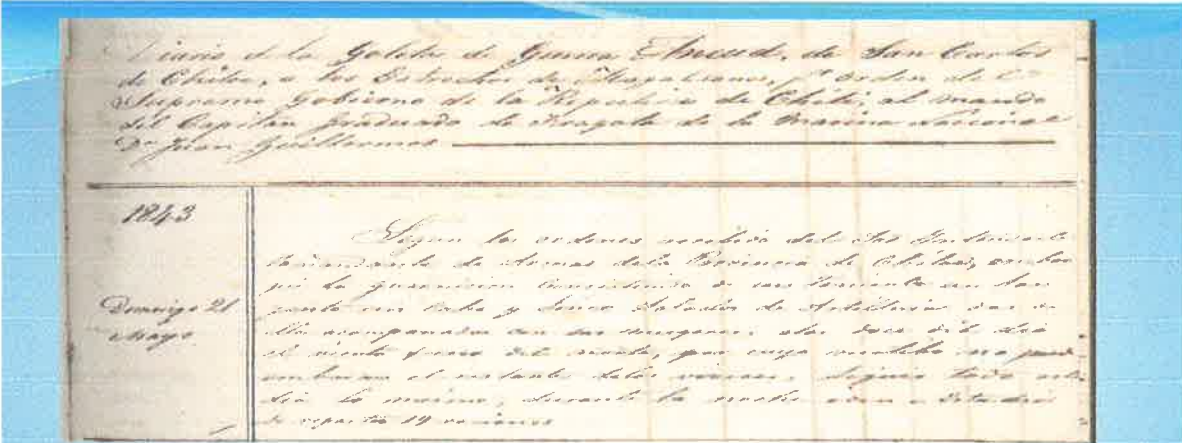 Diario de la Goleta de Guerra Ancud, de San Carlos
de Chiloe, a los Estrechos de Magallanes, pr orden del
Supremo Gobierno de la Republica de Chile, al mando
del Capitan graduado de Fragata de la Marina Nacional
Dn Juan Guillermos
1843
Domingo 21
Mayo
Segun las ordenes recibido del Sor Intendente
Comandante de Armas de la Provincia de Chiloe, embar
qué la guarnicion Consistiendo de un Sarjento un
cabo y cinco Soldados de Artilleria dos de
ellos acompañados con sus mugeres. a las doce del dia
el viento fresco del norte, por cuyo no
embarcar el restante de los viveres. Siguio todo este
dia lo mismo, durante la noche
de repartio 19 raciones